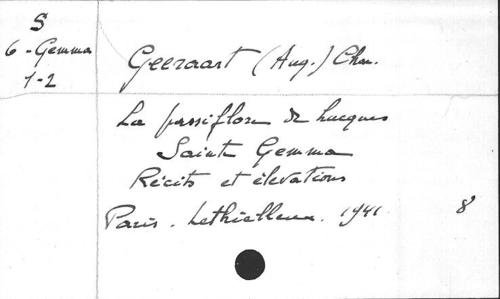 S
6 - Gemma
1-2
Geeraart (Aug.) Chan.
La passiflore de Lucques
Sainte Gemma
Récits et élevations
Paris. Lethielleux. 1941. 8